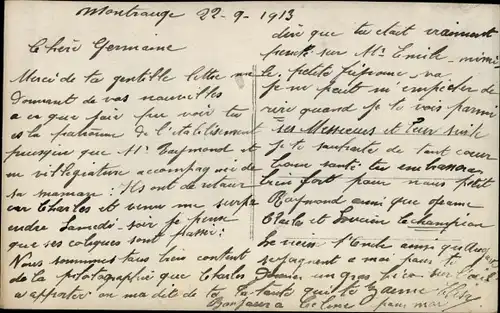 Montrouge 22-9-1913
Chère Germaine
Merci de ta gentille lettre me
donnant de vos nouvelles
a ce que fair peu voir tu
es la patronne de l'établissement
puisque que Mr Raymond et
en villégiature accompagné de
sa maman: Ils ont de retour
car Charles et venu me surpr
endre Samedi soir je pense
que ses coliques sont passé:
Nous sommes tous bien content
de la photographie que Charles
a apporter on ma dit de te
dire que tu était vraiment
sur Mr Emile
la petite friponne va
je ne peut m'empêcher de
rire quand je te vois parmi
ses Messieurs et leur suite
je te souhaite de tout cœur
bonne santé tu embrassera
bien fort pour nous petit
Raymond ainsi que
Charles et Lucien le champion
le vieux l'Emile ainsi
se joignent a moi pour te
donner un gros
la tante qui te
Bonjour a Celine pour moi